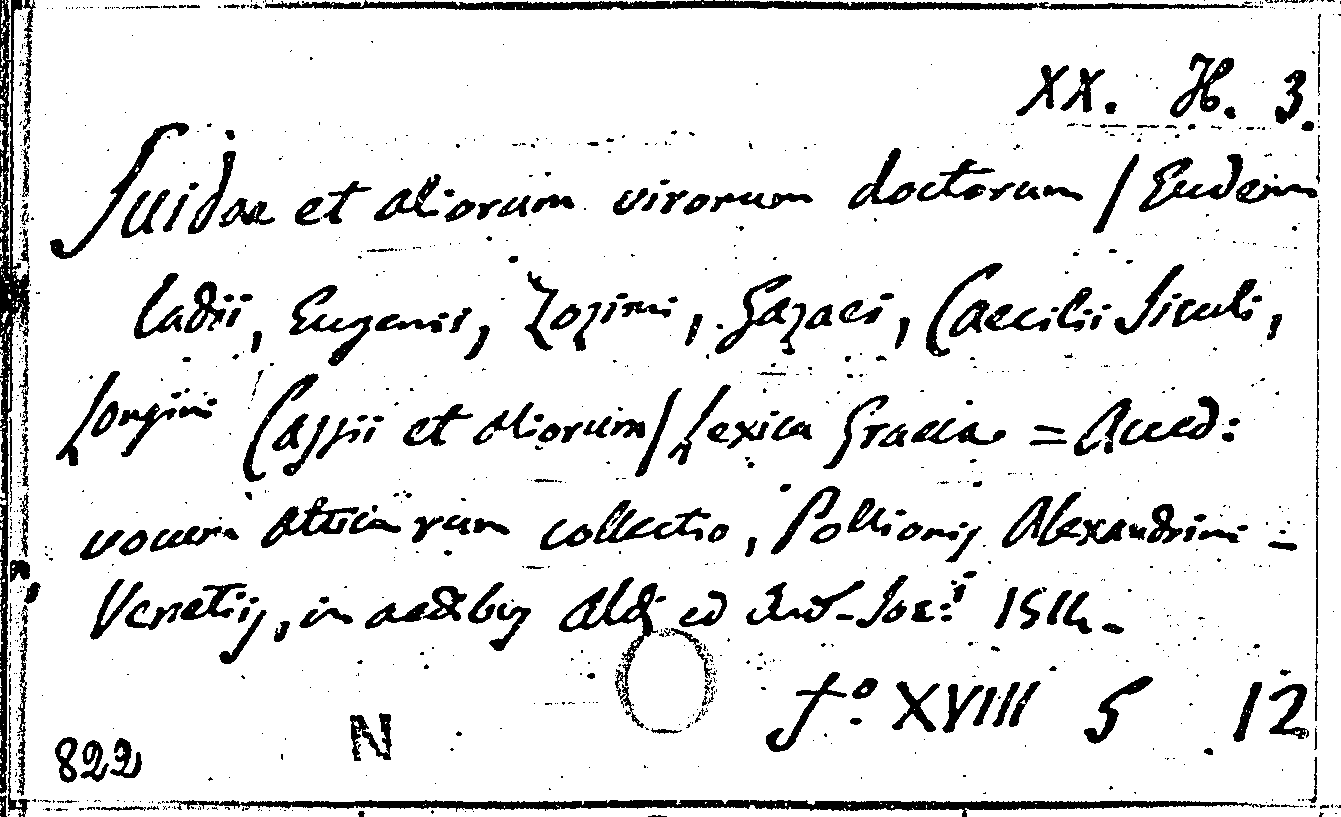 XX. H. 3.
Suidae et aliorum virorum doctorum / Eudemi
ladii, Eugenii, Zozimi, Gazaei, Caecilii Siculi,
Longini Cassii et aliorum / Lexica Graeca = Acced:
vocum atticarum collectio, Pollionis Alexandrini -
Venetiis, in aedibus Aldi ed And. Soc:i 1514.
f.o XVIII 5 12
822 N